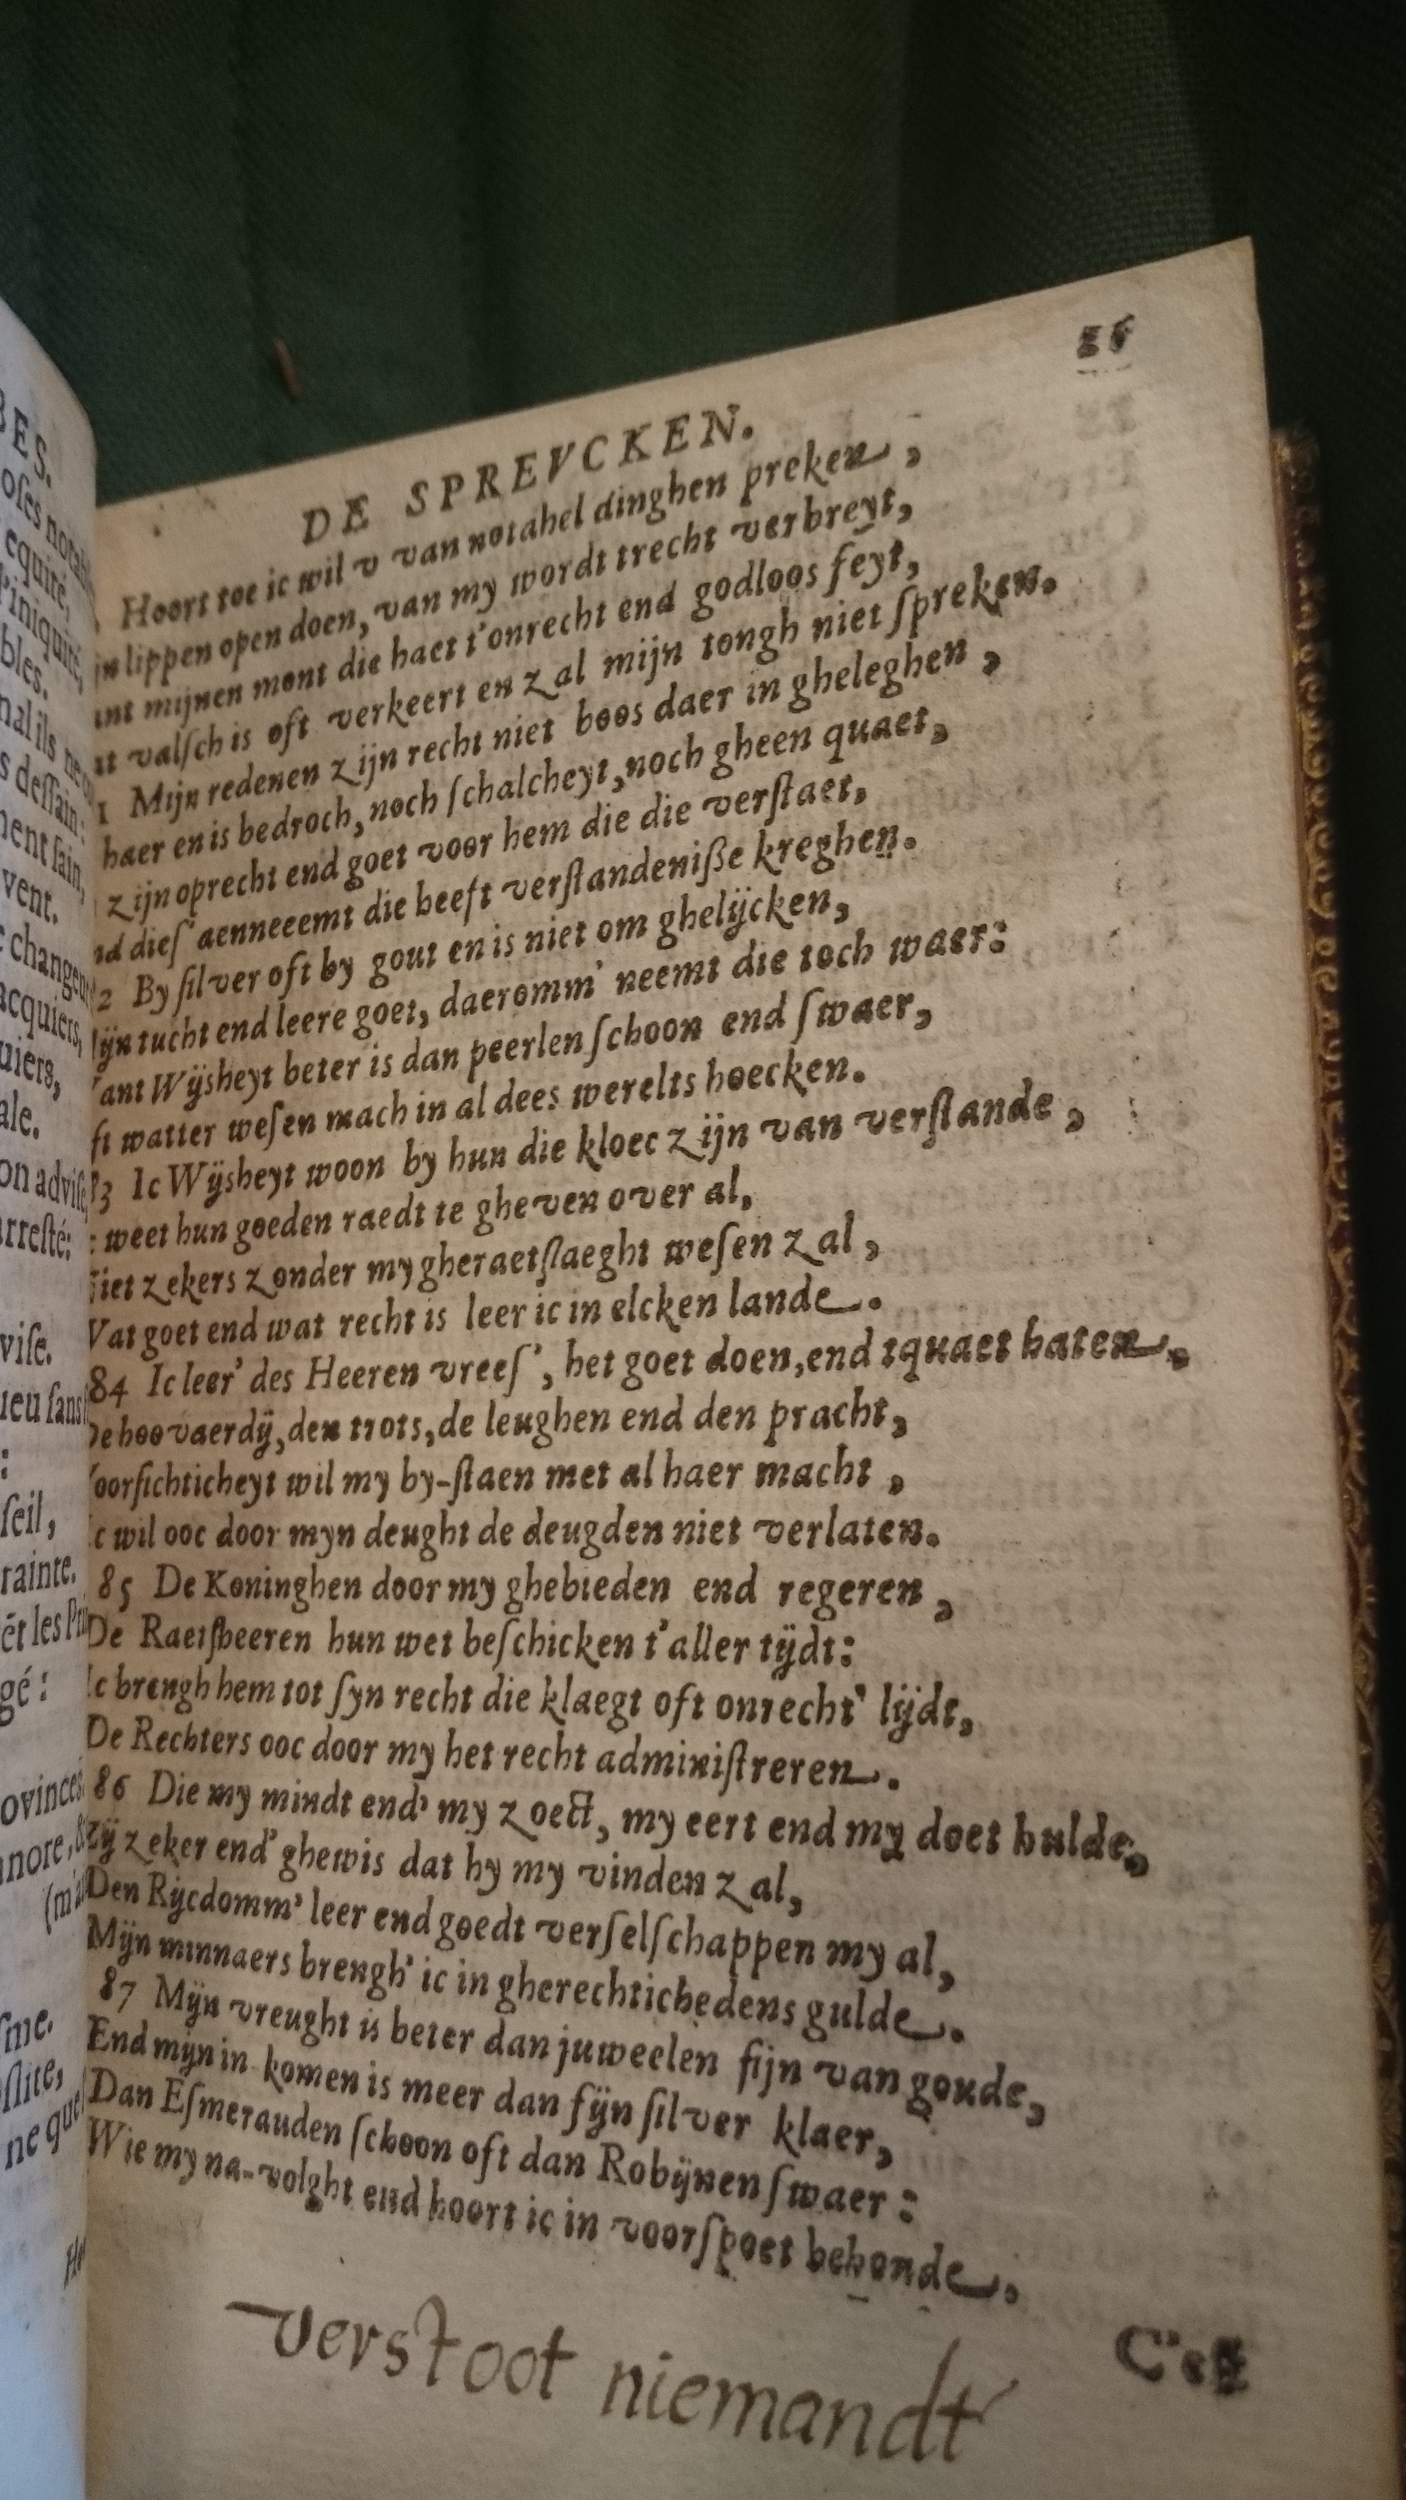 BES.
oſes nota
equité,
l'iniquité,
bles.
nal ils ne
s deſſain:
nent ſain,
vent.
changeu
acquiers,
uiers,
ale.
on adviſe
arreſté:
viſe.
ieu ſans
:
ſeil,
rainte.
ét les Pri
gé:
ovinces
nore, &
(m'
ſme.
ſlite,
ne que
He
25
DE SPREVCKEN.
Hoort toe ic wil v van notabel dinghen preken,
jn lippen open doen, van my wordt trecht verbreyt,
ant mijnen mont die haet t'onrecht end godloos feyt,
at valſch is oft verkeert en zal mijn tongh niet ſpreken.
1 Mijn redenen zijn recht niet boos daer in gheleghen,
haer en is bedroch, noch ſchalcheyt, noch gheen quaet,
zijn oprecht end goet voor hem die die verſtaet,
nd dieſ' aenneeemt die heeft verſtandeniße kreghen.
2 By ſilver oft by gout en is niet om ghelijcken,
ijn tucht end leere goet, daeromm' neemt die toch waer:
ant Wijsheyt beter is dan peerlen ſchoon end ſwaer,
ft watter weſen mach in al dees werelts hoecken.
83 Ic Wijsheyt woon by hun die kloec zijn van verſtande,
: weet hun goeden raedt te gheven over al,
iet zekers zonder my gheraetſlaeght weſen zal,
Vat goet end wat recht is leer ic in elcken lande.
84 Ic leer' des Heeren vreeſ', het goet doen, end tquaet haten.
De hoovaerdij, den trots, de leughen end den pracht,
oorſichticheyt wil my by-ſtaen met al haer macht,
Ic wil ooc door myn deught de deugden niet verlaten.
85 De Koninghen door my ghebieden end regeren,
De Raetſheeren hun wet beſchicken t'aller tijdt:
Ic brengh hem tot ſyn recht die klaegt oft onrecht' lijdt,
De Rechters ooc door my het recht adminiſtreren.
86 Die my mindt end' my zoect, my eert end my doet hulde,
Zij zeker end' ghewis dat hy my vinden zal,
Den Rijcdomm' leer end goedt verſelſchappen my al,
Mijn minnaers brengh' ic in gherechtichedens gulde.
87 Mijn vreught is beter dan juweelen fijn van goude,
End mijn in komen is meer dan fijn ſilver klaer,
Dan Eſmerauden ſchoon oft dan Robijnen ſwaer:
Wie my na-volght end hoort ic in voorſpoet behoude.
verstoot niemandt